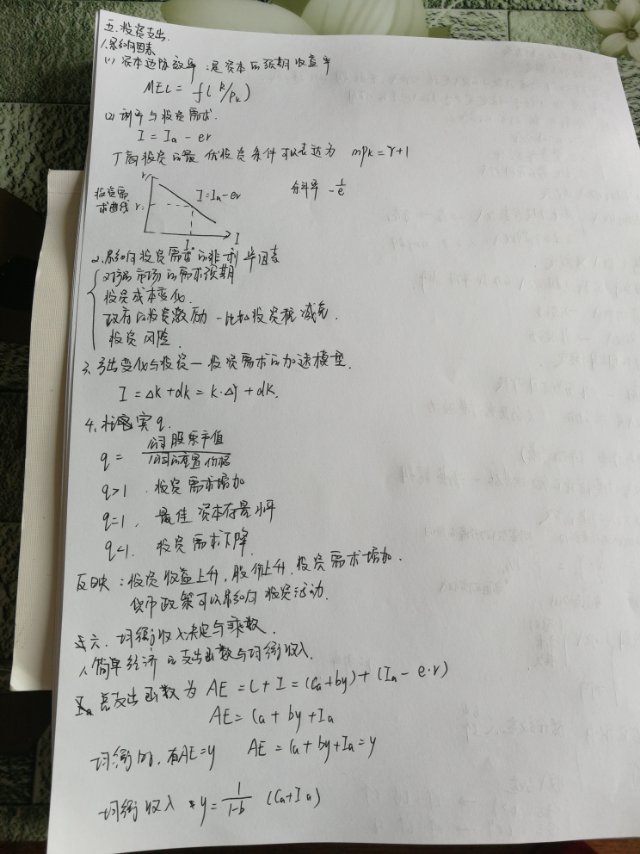 五.投资支出.
1.影响因素
(1) 资本边际效率:是资本的预期收益率
MEC = f(R/Pk)
(2) 利率与投资需求.
I = Ia - er
厂商投资的最优投资条件可以表达为 mpk = r+1
r
投资需求曲线
I = Ia - er
斜率 -1/e
r.
I.
I
2.影响投资需求的非利率因素
对产品市场的需求预期
投资成本变化.
政府的投资激励 - 比如投资税减免.
投资风险.
3.产出变化与投资一投资需求的加速模型.
I = ΔK + dk = k·ΔY + dK.
4.托宾q.
q = 公司股票市值/公司的重置价格
q>1 . 投资需求增加
q=1, 最佳资本存量水平
q<1. 投资需求下降.
反映:投资收益上升,股价上升,投资需求增加.
货币政策可以影响投资活动.
六. 均衡收入决定与乘数.
1.简单经济的支出函数与均衡收入.
总支出函数为 AE = C + I = (Ca+by) + (Ia - e·r)
AE = Ca + by + Ia
均衡时,有AE=y AE = Ca + by + Ia = y
均衡收入 y = 1/1-b (Ca+Ia)